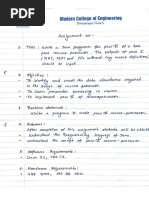 Modern College of Engineering
Shivajinagar, Pune 5.
Assignment no-
Title : Write a Java program for pass-II of a two
pass macro-processor. The output of pass-I
(MNT, MDT and file without any macro definitions)
should be input.
Objective :
To identify and create the data structures required
in the design of macro-processor.
To learn parameter processing in macro.
To implement pass-II of macroprocessor.
Problem statement :
Write a program to implement pass-II of macro-processor.
Outcomes :
After completion of this assignment students will be able to
understand the Programming language of Java.
Understand the concept of Pass-II macro-processor.
Software Requirements :
Hardware Requirements :